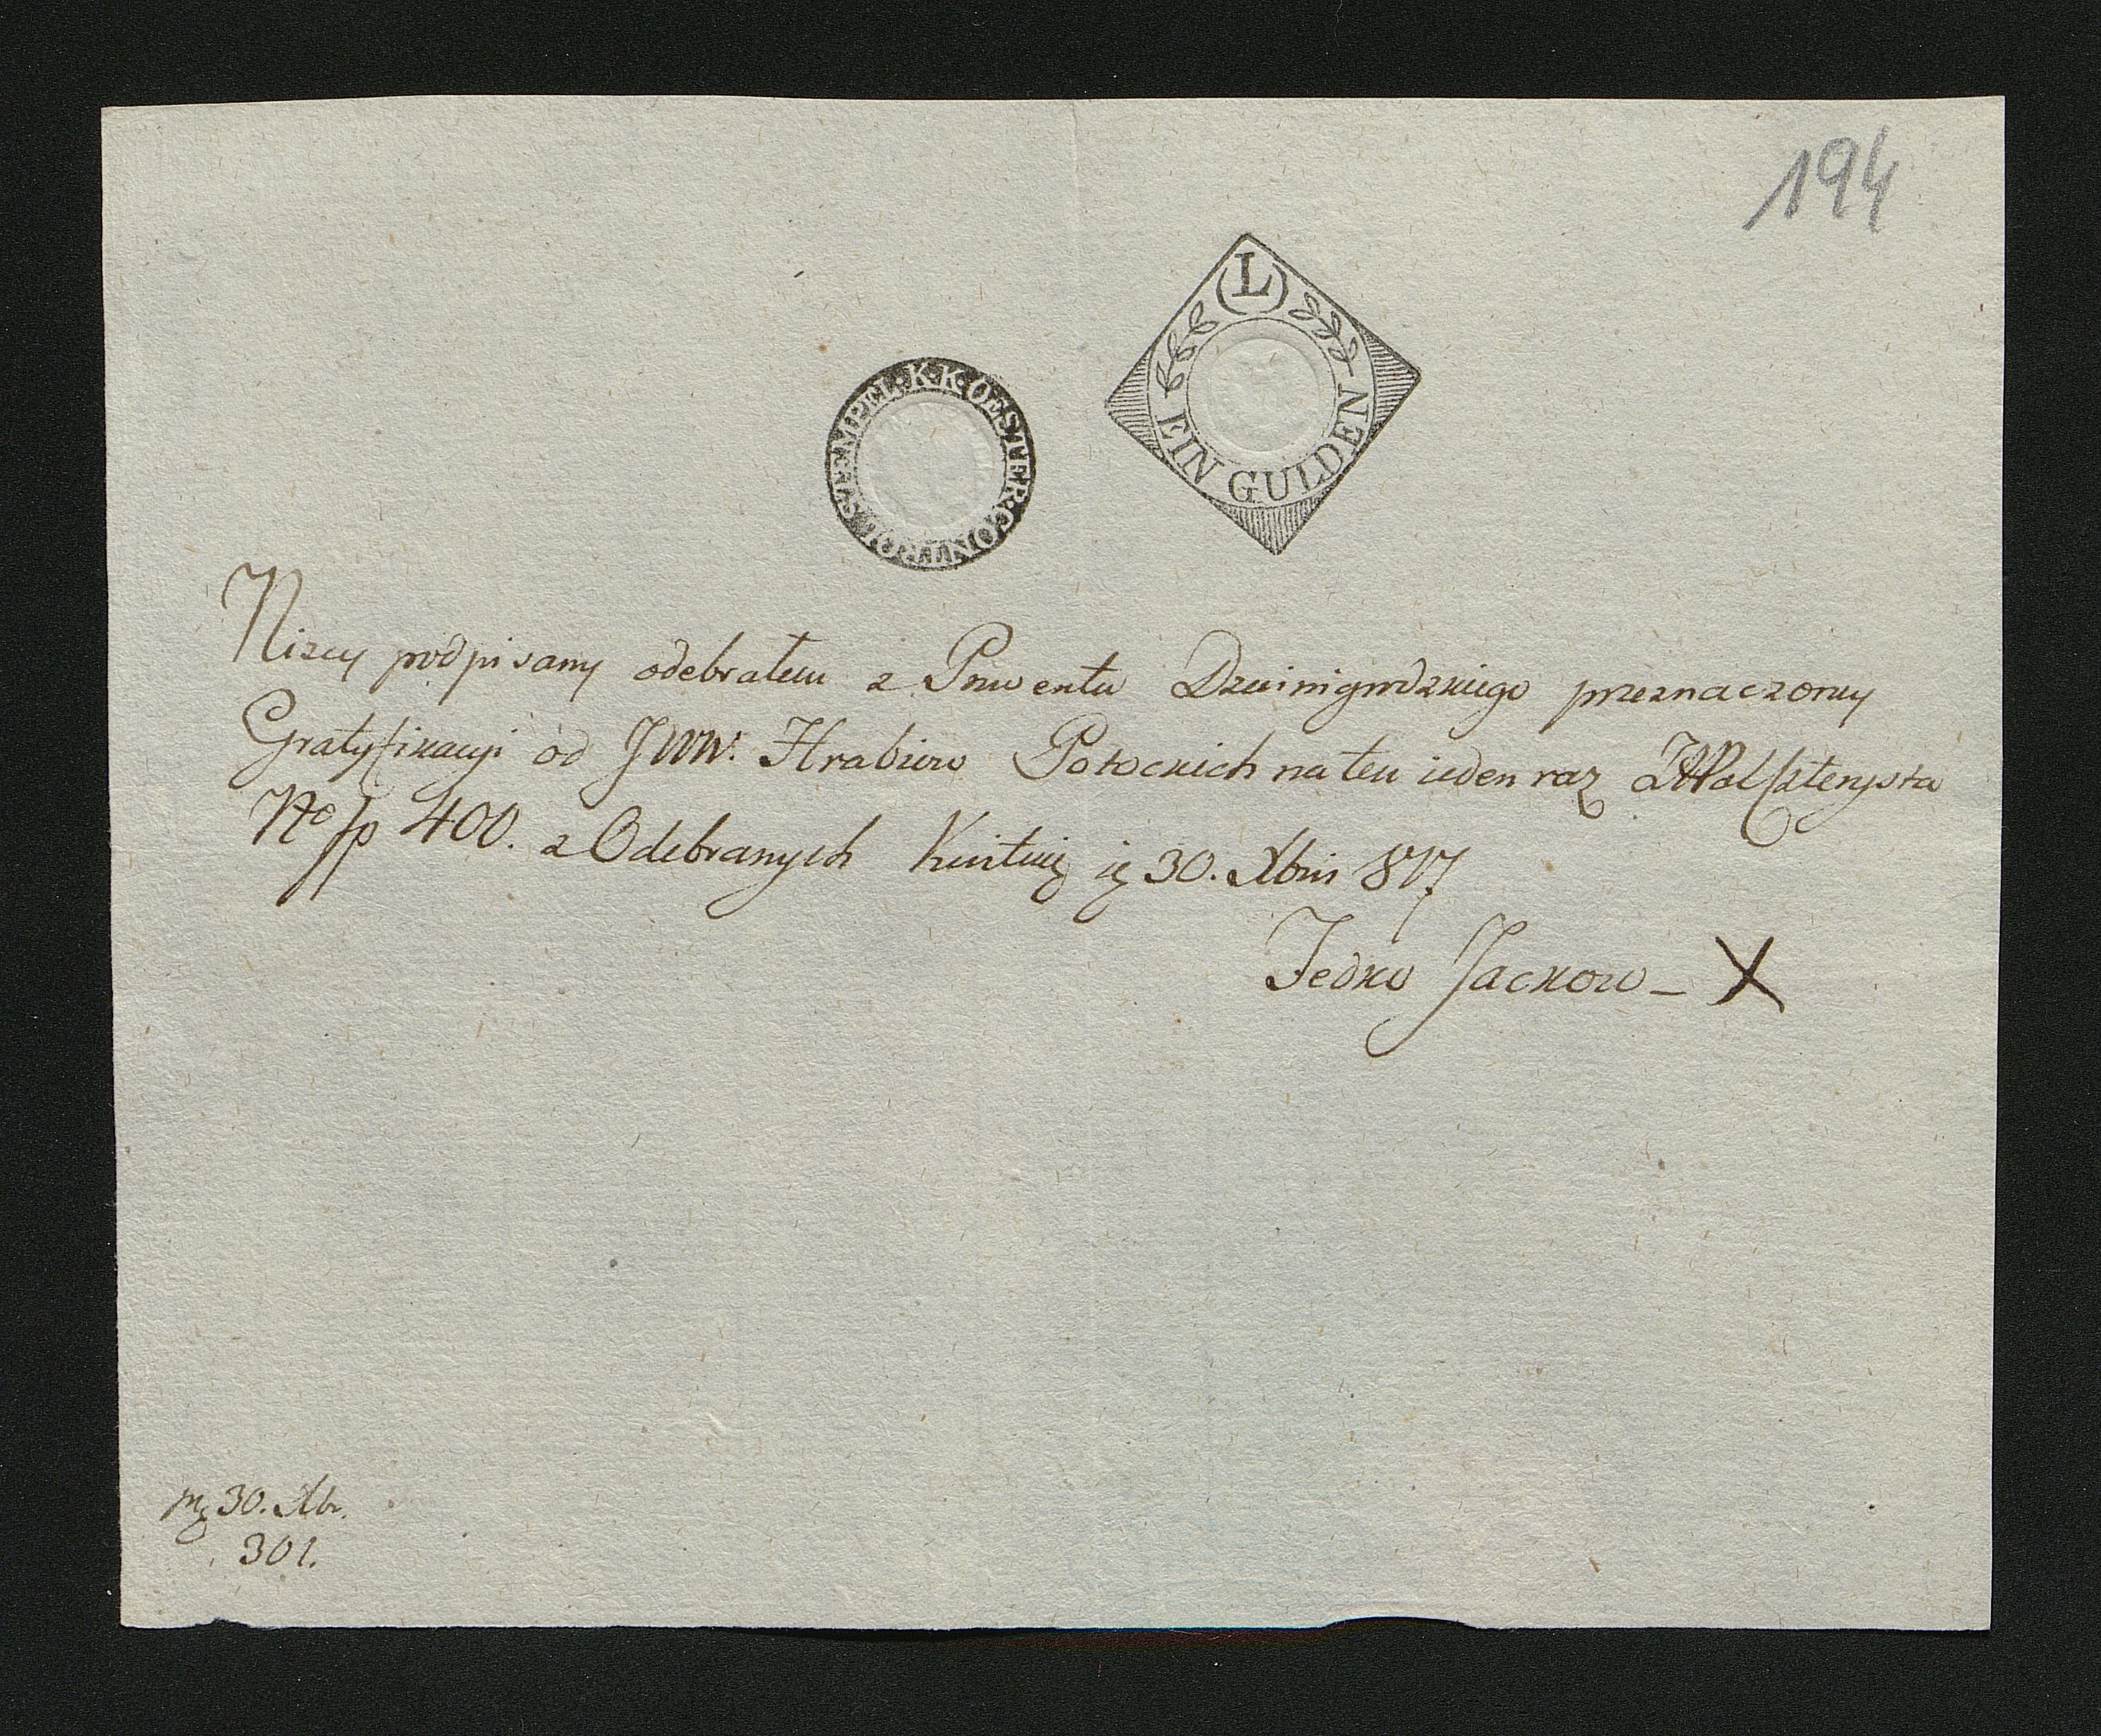 194
K·K·OESTER·CONTROL STAEMPEL·
(L)
EIN GULDEN
Nizey podpisany odebrałem z Prowentu Dzwinigrodzkiego przeznaczoney
Gratyfikacyi od JWW. Hrabiow Potockich na ten ieden raz ZłPol czterysta
No fp 400. z Odebranych Kwituię ię 30. Xbris 817
Fedko Jackow – X
30. Xbr.
301.